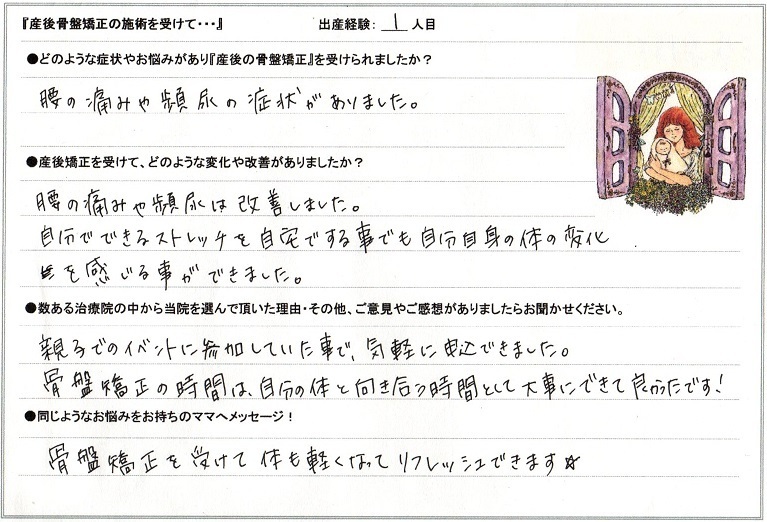 『産後骨盤矯正の施術を受けて・・・』 出産経験： 1 人目
●どのような症状やお悩みがあり『産後の骨盤矯正』を受けられましたか？
腰の痛みや頻尿の症状がありました。
●産後矯正を受けて、どのような変化や改善がありましたか？
腰の痛みや頻尿は改善しました。
自分でできるストレッチを自宅でする事でも自分自身の体の変化
を感じる事ができました。
●数ある治療院の中から当院を選んで頂いた理由・その他、ご意見やご感想がありましたらお聞かせください。
親子でのイベントに参加していた事で、気軽に申込できました。
骨盤矯正の時間は、自分の体と向き合う時間として大事にできて良かったです！
●同じようなお悩みをお持ちのママへメッセージ！
骨盤矯正を受けて体も軽くなってリフレッシュできます☆